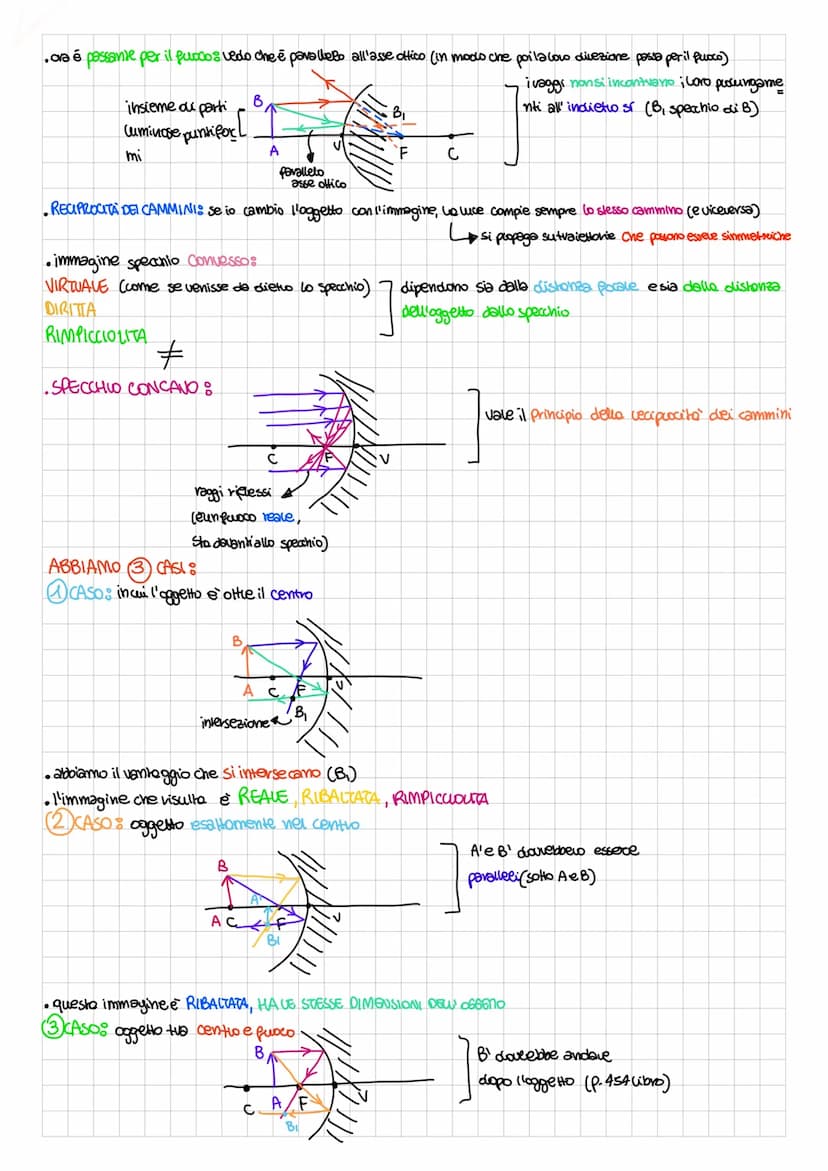 . ora é passante per il fuoco: vedo che è parallelo all'asse ottico (in modo che poi la loro direzione passa per il fuoco)
i raggi non si incontrano i loro prolungame
nti all'indietro sí (B₁ specchio di B)
insieme di parti
luminose puntifor
mi
B
B₁
A
V
F
C
parallelo
asse ottico
. RECIPROCITÀ DEI CAMMINI: se io cambio l'oggetto con l'immagine, la luce compie sempre lo stesso cammino (e viceversa)
si propaga su traiettorie che possono essere simmetriche
. immagine specchio convesso:
VIRTUALE (come se venisse da dietro lo specchio)
DIRITTA
RIMPICCIOLITA
dipendono sia dalla distanza focale e sia dalla distanza
dell'oggetto dallo specchio
≠
. SPECCHIO CONCAVO:
vale il principio della reciprocità dei cammini
C
F
V
raggi riflessi
(è un fuoco reale,
sta davanti allo specchio)
ABBIAMO 3 CASI:
1 CASO: in cui l'oggetto è oltre il centro
B
A
C
F
V
B₁
intersezione
. abbiamo il vantaggio che si intersecano (B₁)
. l'immagine che risulta è REALE, RIBALTATA, RIMPICCIOLITA
2 CASO: oggetto esattamente nel centro
A' e B' dovrebbero essere
paralleli (sotto A e B)
B
A'
A
C
F
V
B₁
. questa immagine è RIBALTATA, HA LE STESSE DIMENSIONI DELL'OGGETTO
3 CASO: oggetto tra centro e fuoco
B' dovrebbe andare
dopo l'oggetto (p. 454 libro)
B
C
A
F
V
B₁